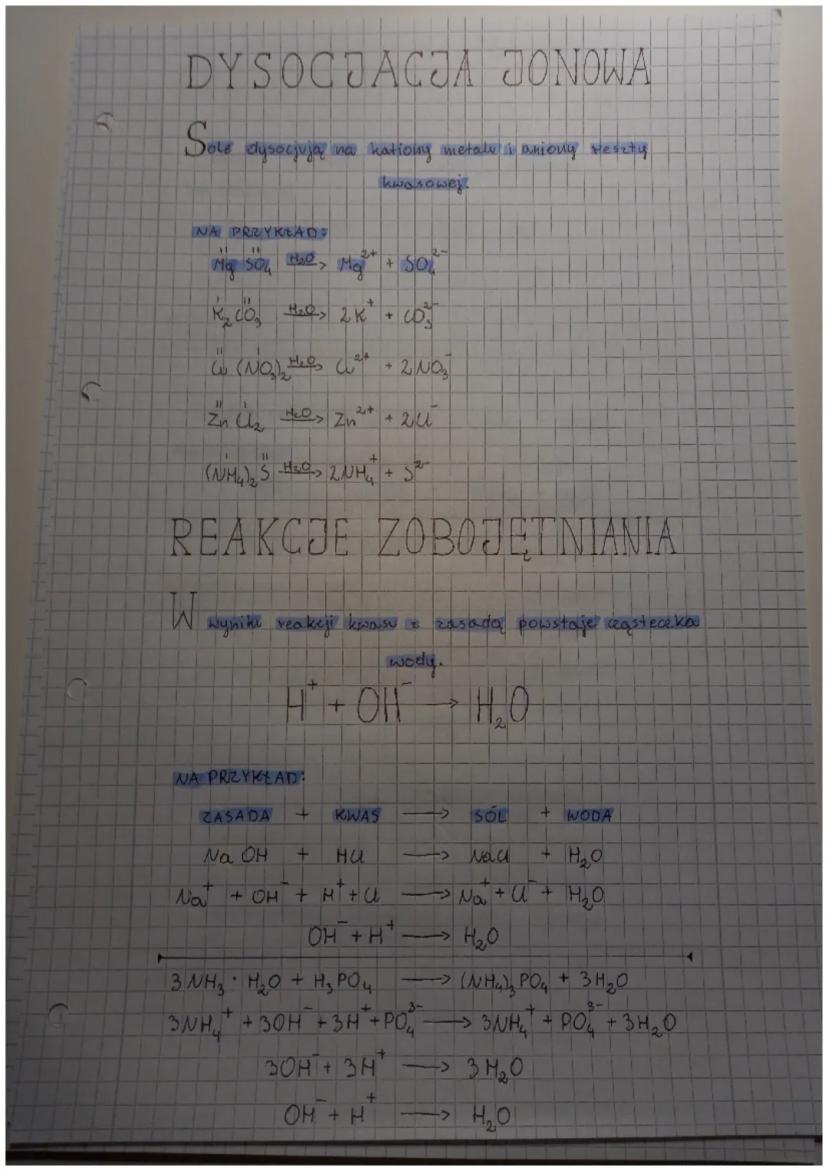 DYSOCJACJA JONOWA
Sole dysocjują na kationy metalu i aniony reszty
kwasowej.
NA PRZYKŁAD:
II II
MgSO₄ —H₂O→ Mg²⁺ + SO₄²⁻
I II
K₂CO₃ —H₂O→ 2K⁺ + CO₃²⁻
II I
Cu(NO₃)₂ —H₂O→ Cu²⁺ + 2NO₃⁻
II I
ZnCl₂ —H₂O→ Zn²⁺ + 2Cl⁻
I II
(NH₄)₂S —H₂O→ 2NH₄⁺ + S²⁻
REAKCJE ZOBOJĘTNIANIA
W wyniku reakcji kwasu z zasadą powstaje cząsteczka
wody.
H⁺ + OH⁻ → H₂O
NA PRZYKŁAD:
ZASADA + KWAS → SÓL + WODA
NaOH + HCl → NaCl + H₂O
Na⁺ + OH⁻ + H⁺ + Cl → Na⁺ + Cl⁻ + H₂O
OH⁻ + H⁺ → H₂O
3NH₃ · H₂O + H₃PO₄ → (NH₄)₃PO₄ + 3H₂O
3NH₄⁺ + 3OH⁻ + 3H⁺ + PO₄³⁻ → 3NH₄⁺ + PO₄³⁻ + 3H₂O
3OH⁻ + 3H⁺ → 3H₂O
OH⁻ + H⁺ → H₂O